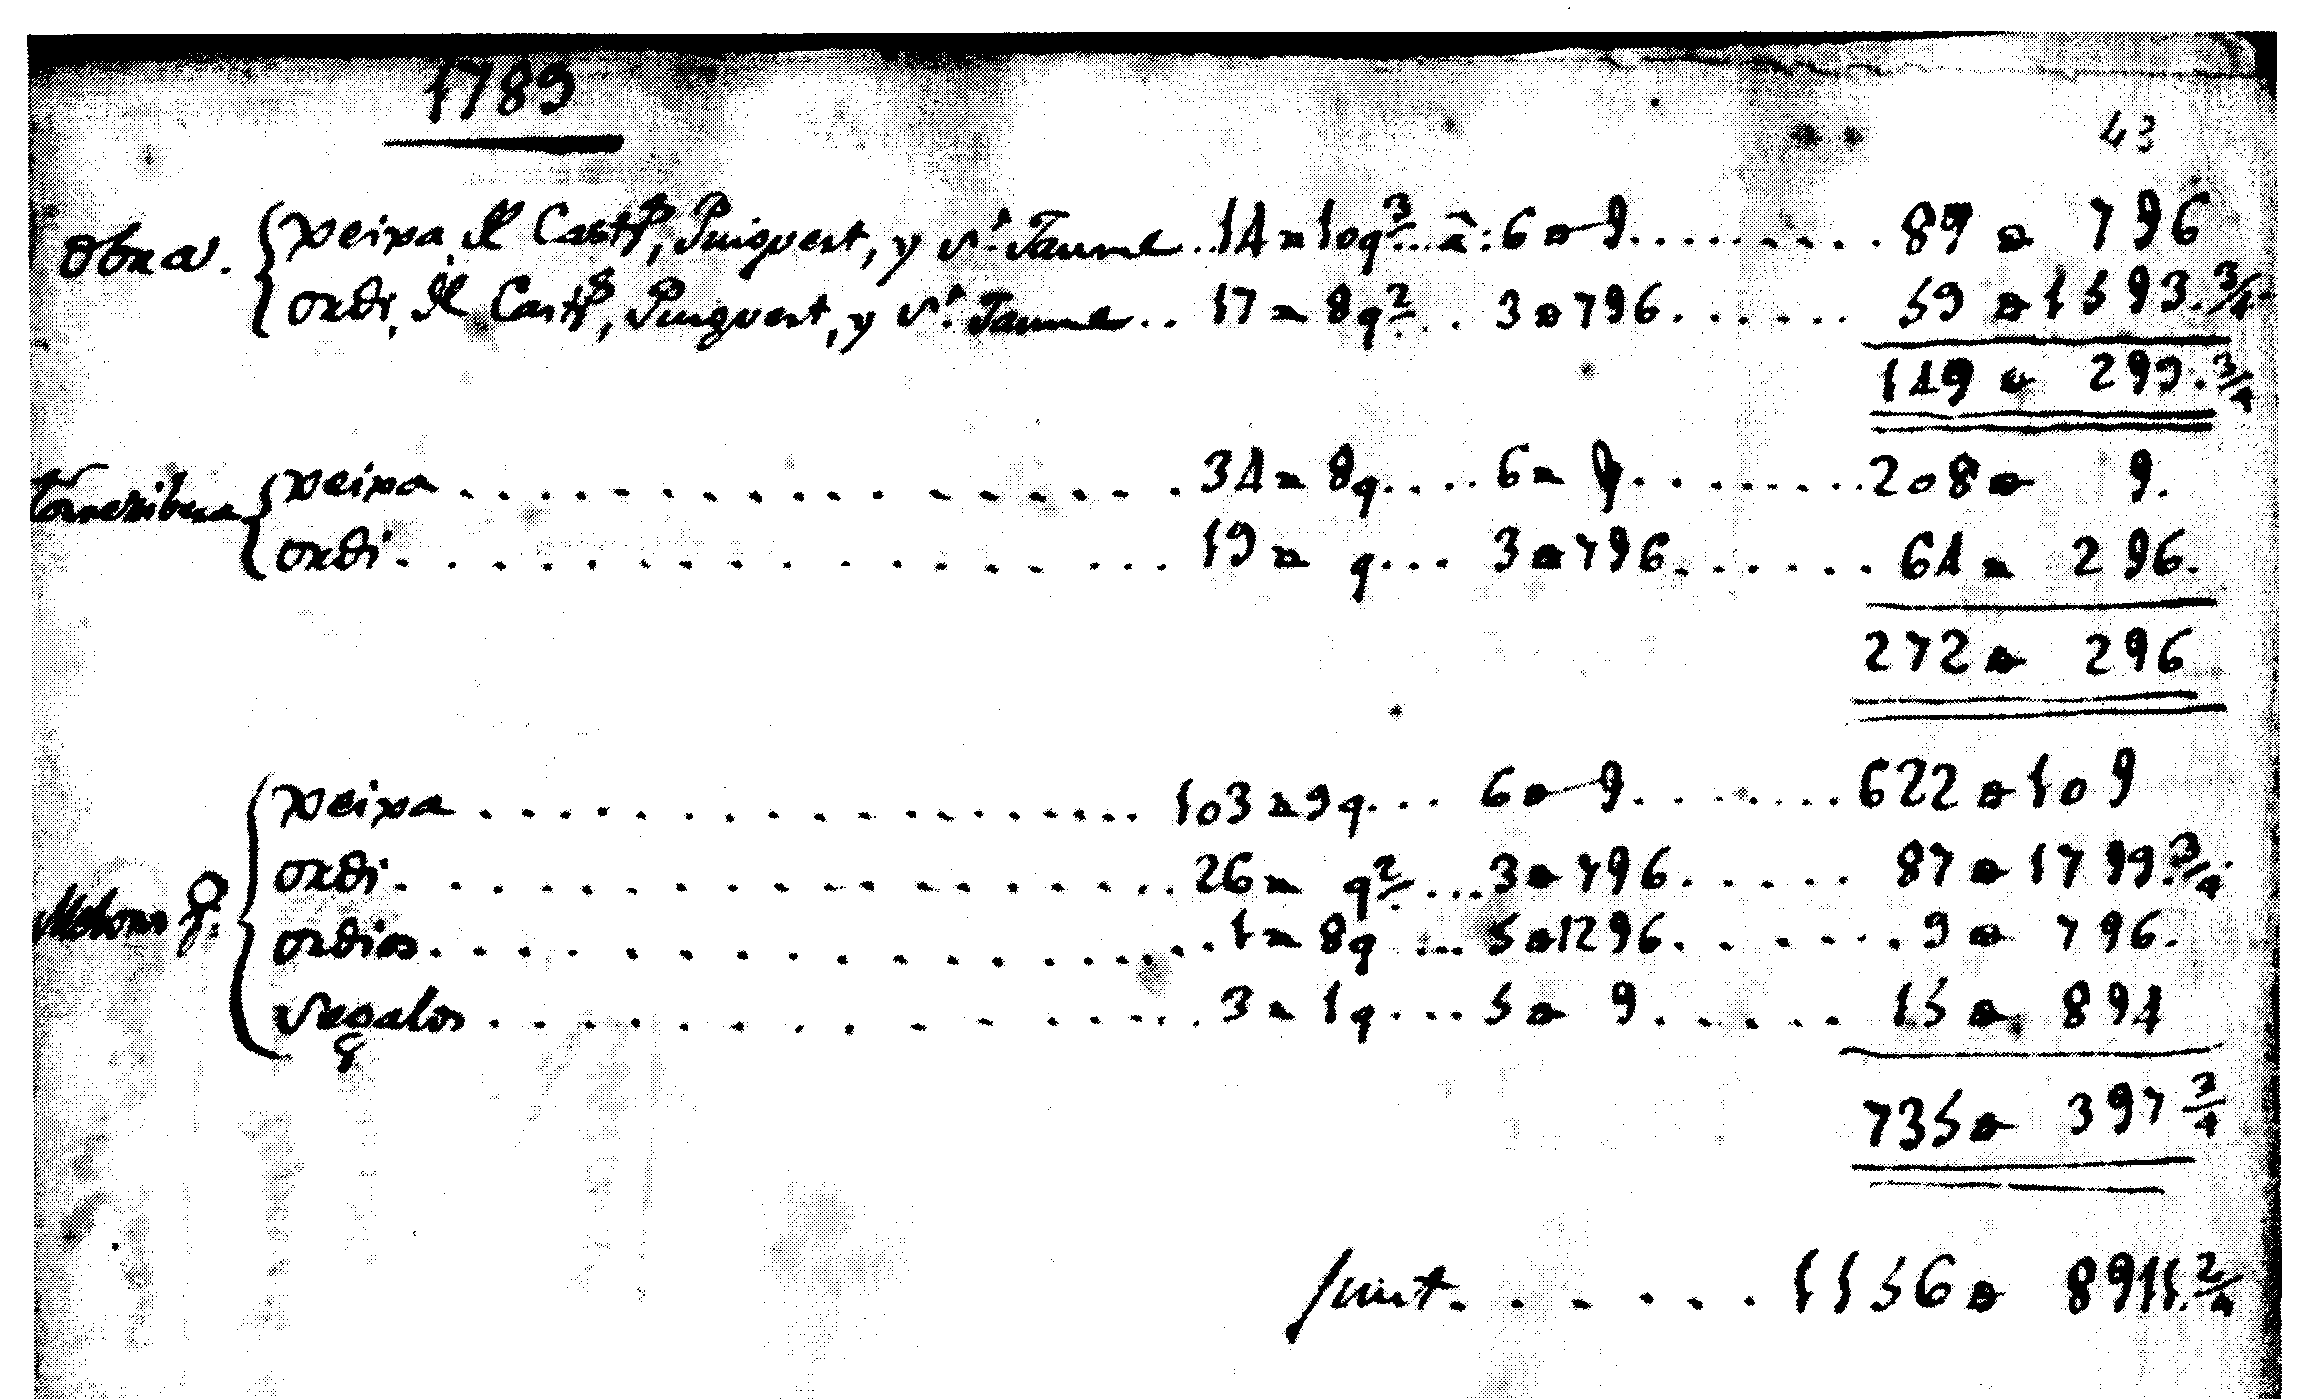 1789
43
Obra. { xeixa, dl Castr, Puigvert, y St. Jaume .. 14 = 10 q 3/. a: 6 # 9 ......... 89 # 7 9 6
ordi, dl Castr, Puigvert, y St. Jaume .. 17 = 8 q 2/. .. 3 # 7 9 6 ...... 59 # 15 9 3. 3/4.
149 # 2 9 9. 3/4
Torreribera { xeixa .................. 34 = 8 q .... 6 = 9 ......... 208 # 9.
ordi ................... 19 = q ... 3 # 7 9 6 ...... 64 = 2 9 6.
272 # 2 9 6
xeixa .................. 103 = 9 q ... 6 # 9 ....... 622 # 10 9
ordi ................... 26 = q 2/. ... 3 # 7 9 6 ...... 87 # 17 9 9. 3/4
ordios .................. 1 = 8 q ... 5 # 12 9 6 ...... 9 # 7 9 6.
Segalos ................. 3 = 1 q ... 5 # 9 ...... 15 # 8 9 4
735 # 3 9 7 3/4
Junt ...... 1156 # 8 9 11. 2/4